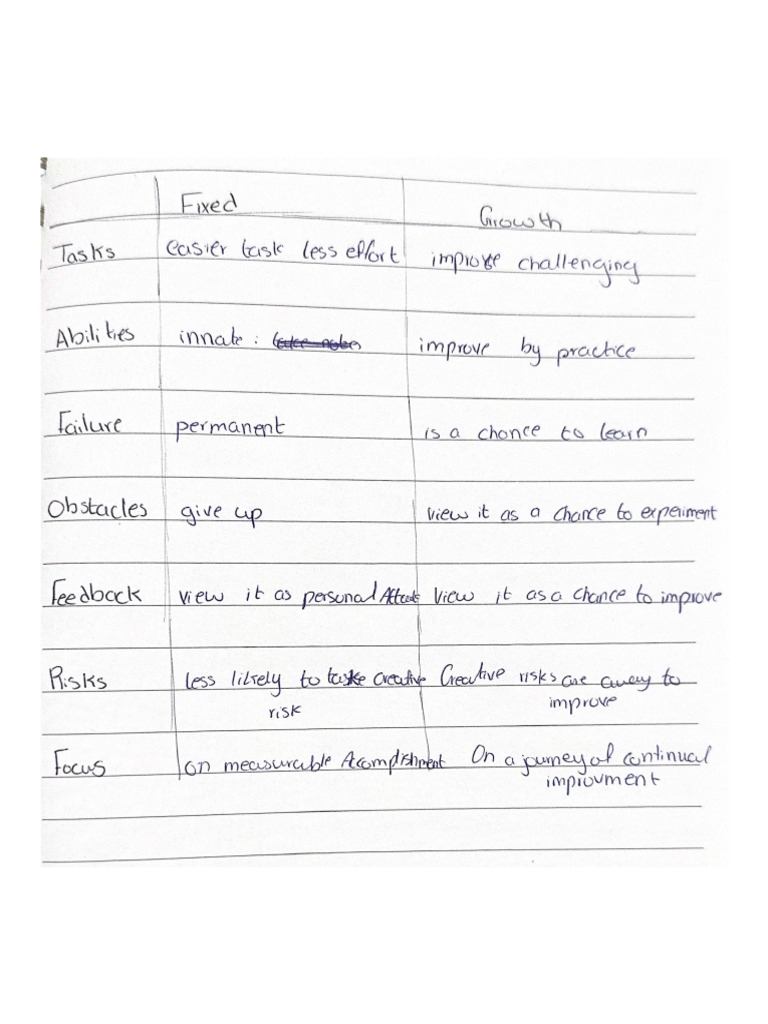 Fixed Growth
Tasks easier task less effort improve challenging
Abilities innate : improve by practice
Failure permanent is a chance to learn
Obstacles give up view it as a chance to experiment
Feedback view it as personal Attack View it as a chance to improve
Risks less likely to take creative Creative risks are away to
risk improve
Focus on measurable Acomplishment On a journey of continual
improvment